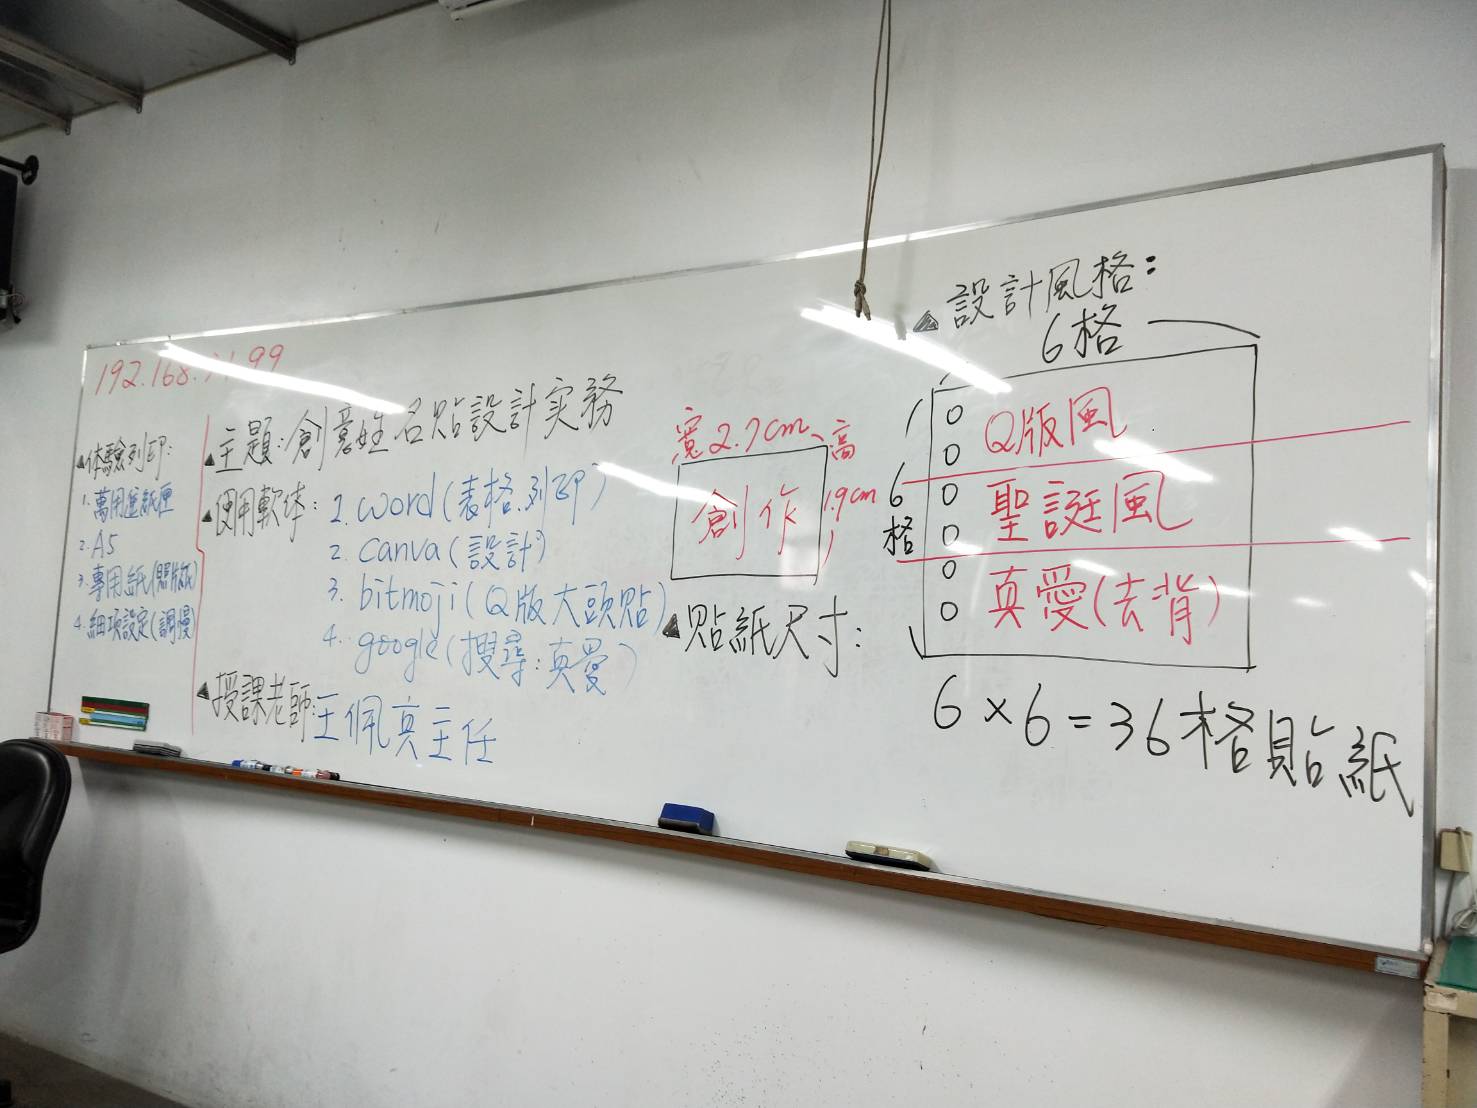 ▲体驗列印:
1. 萬用進紙匣
2. A5
3. 專用紙(照版紙)
4. 細項設定(調慢)
▲主題:創意姓名貼設計实務
▲使用軟体:
1. word(表格.列印)
2. canva(設計)
3. bitmoji(Q版大頭貼)
4. google(搜尋:真愛)
▲授課老師:王佩真主任
寬2.7cm、高1.9cm
創作
▲貼紙尺寸:
▲設計風格:
6格
6格
Q版風
聖誕風
真愛(去背)
6×6=36格貼紙